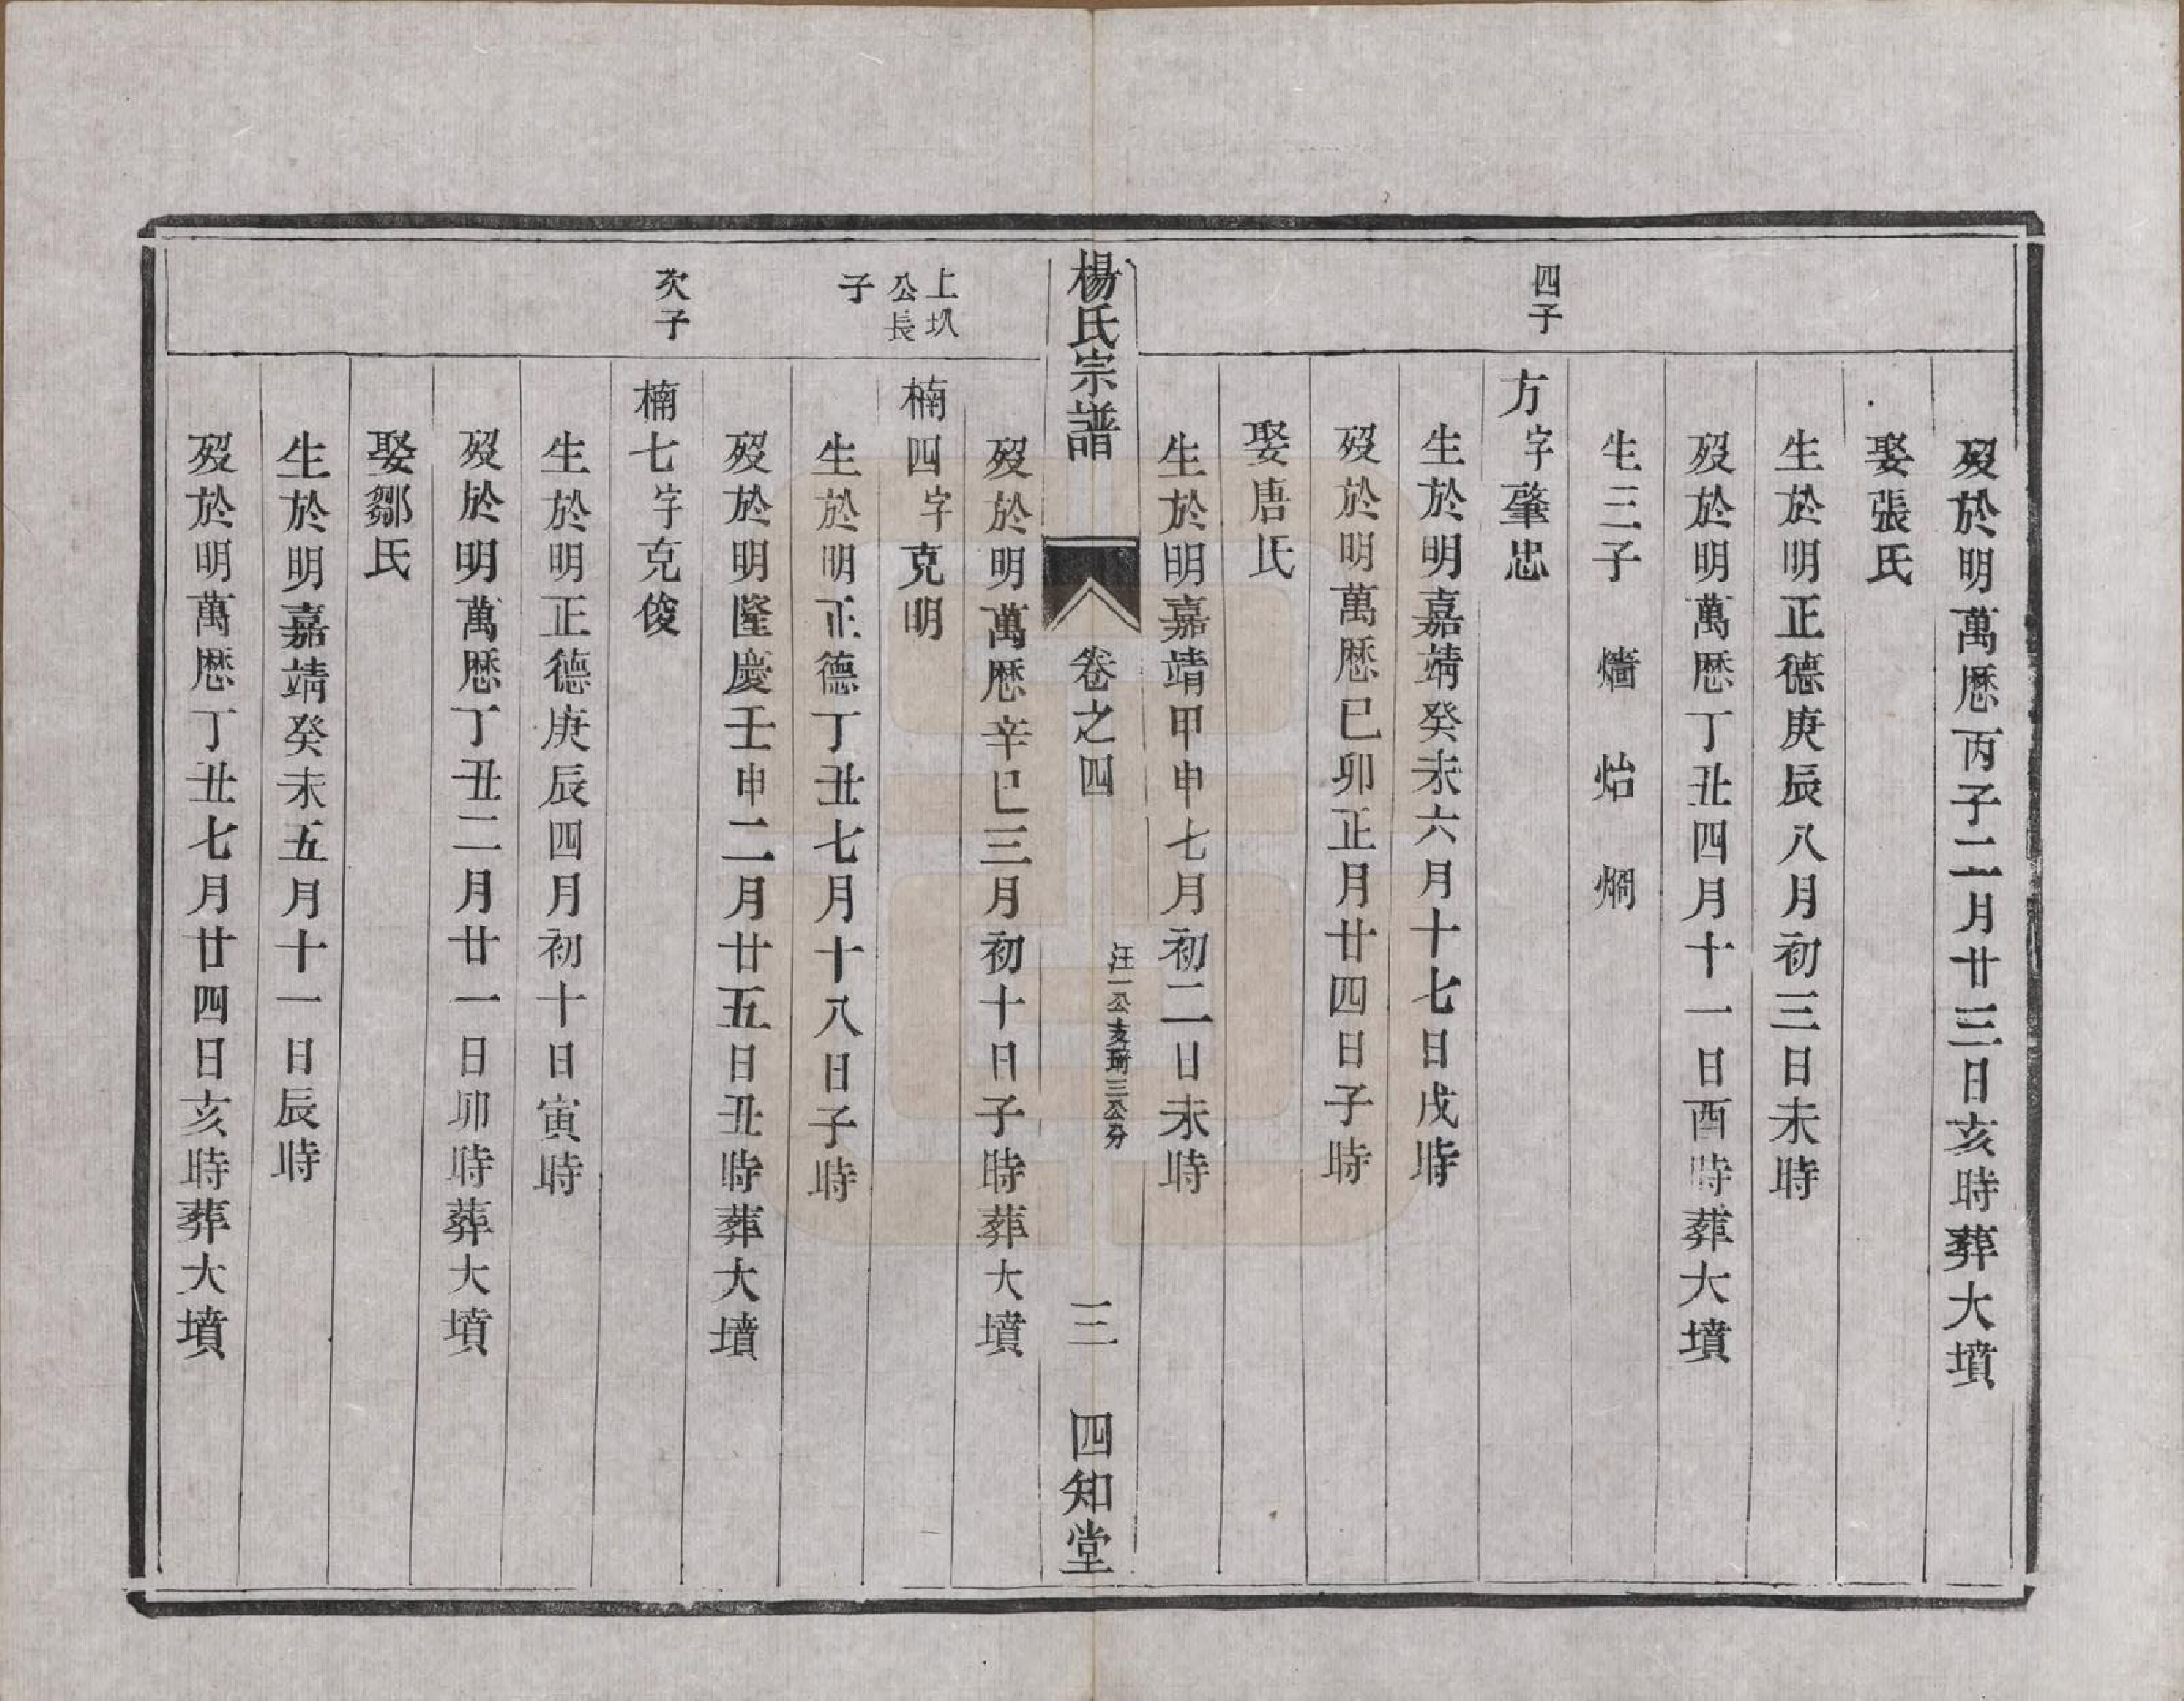 歿於明萬厯丙子二月廿三日亥時葬大墳
娶張氏
生於明正德庚辰八月初三日未時
歿於明萬厯丁丑四月十一日酉時葬大墳
生三子 燔 炲 烱
四子
方字肇忠
生於明嘉靖癸未六月十七日戌時
歿於明萬厯己卯正月廿四日子時
娶唐氏
生於明嘉靖甲申七月初二日未時
楊氏宗譜 卷之四 汪一公支琦三公分 三 四知堂
歿於明萬厯辛巳三月初十日子時葬大墳
上圦
公長
子
楠四字克明
生於明正德丁丑七月十八日子時
歿於明隆慶壬申二月廿五日丑時葬大墳
次子
楠七字克俊
生於明正德庚辰四月初十日寅時
歿於明萬厯丁丑二月廿一日卯時葬大墳
娶鄒氏
生於明嘉靖癸未五月十一日辰時
歿於明萬厯丁丑七月廿四日亥時葬大墳